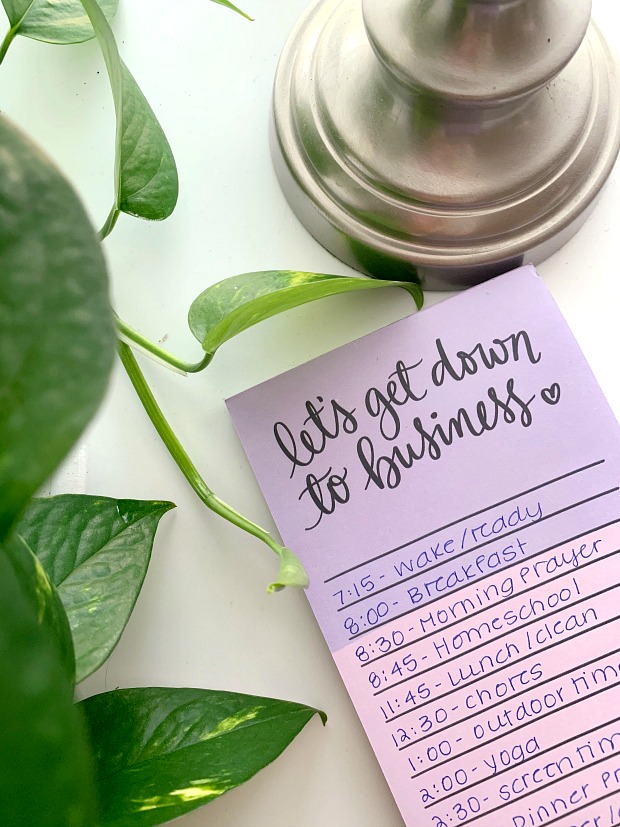 let's get down
to business
7:15- wake/ready
8:00- Breakfast
8:30- Morning Prayer
8:45- Homeschool
11:45- Lunch/clean
12:30- chores
1:00- outdoor time
2:00- yoga
2:30- screen tim
Dinner Pr